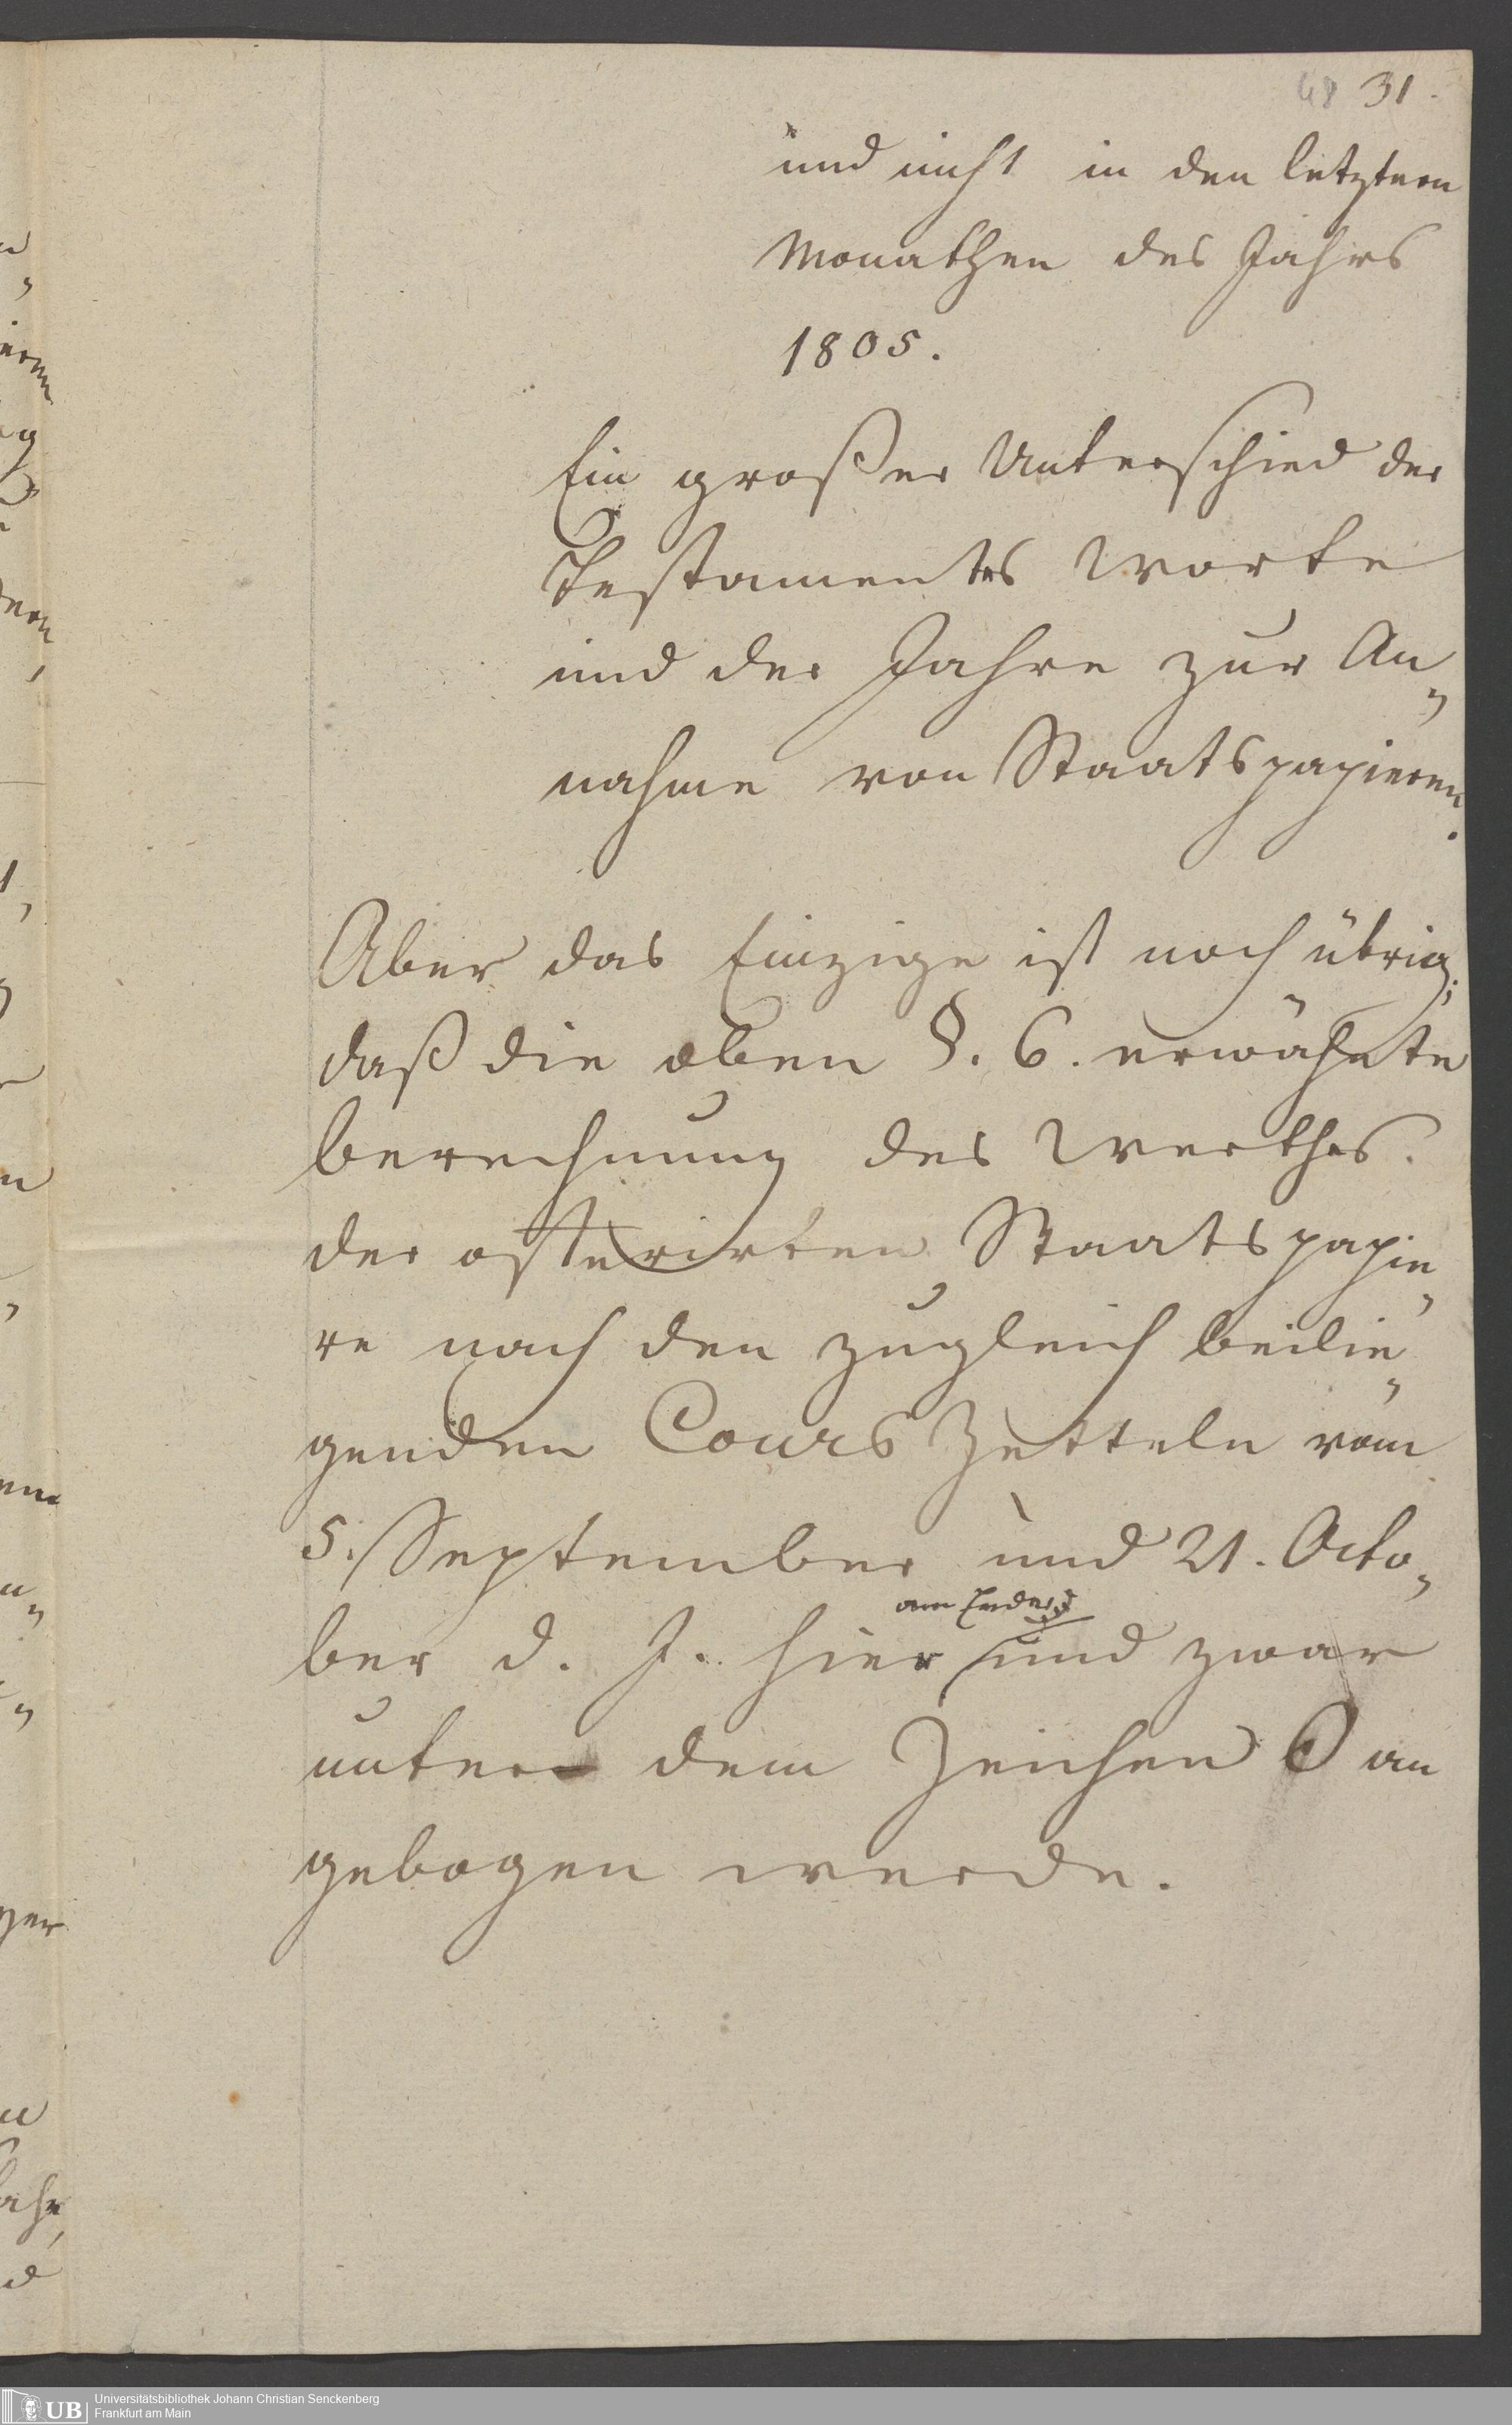 48 31.
und nicht in den letztern
Monathen des Jahrs
1805.
Ein großer Unterschied der
Testaments Worte
und der Jahre zur An„
nahme von Staatspapieren.
Aber das Einzige ist noch übrig;
daß die oben §. 6. erwähnte
berechnung des Werthes
der offerirten Staatspapie„
re nach den zugleich beilie„
genden Cours Zetteln vom
5. September und 21. Octo„
am Ende
ber d. J. hier und zwar
unter dem Zeichen an
gebogen werde.
UB Universitätsbibliothek Johann Christian Senckenberg
Frankfurt am Main